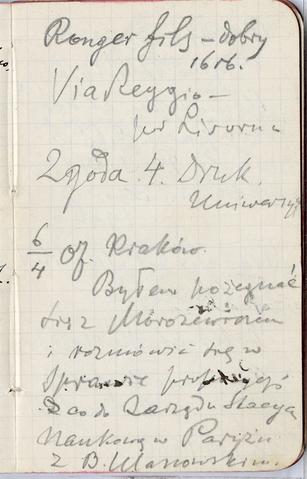 Ronger fils – dobry
16 rb.
Via Reggio –
pod Livorno
Zgoda 4. Druk.
Uniwersyt
6/4 of. Kraków.
Byłem pożegnać
się z Morozewiczem
i rozmówić się w
sprawie
Z co do Zarządu Stacya
Naukowej w Paryżu
z B. Ulanowskim.